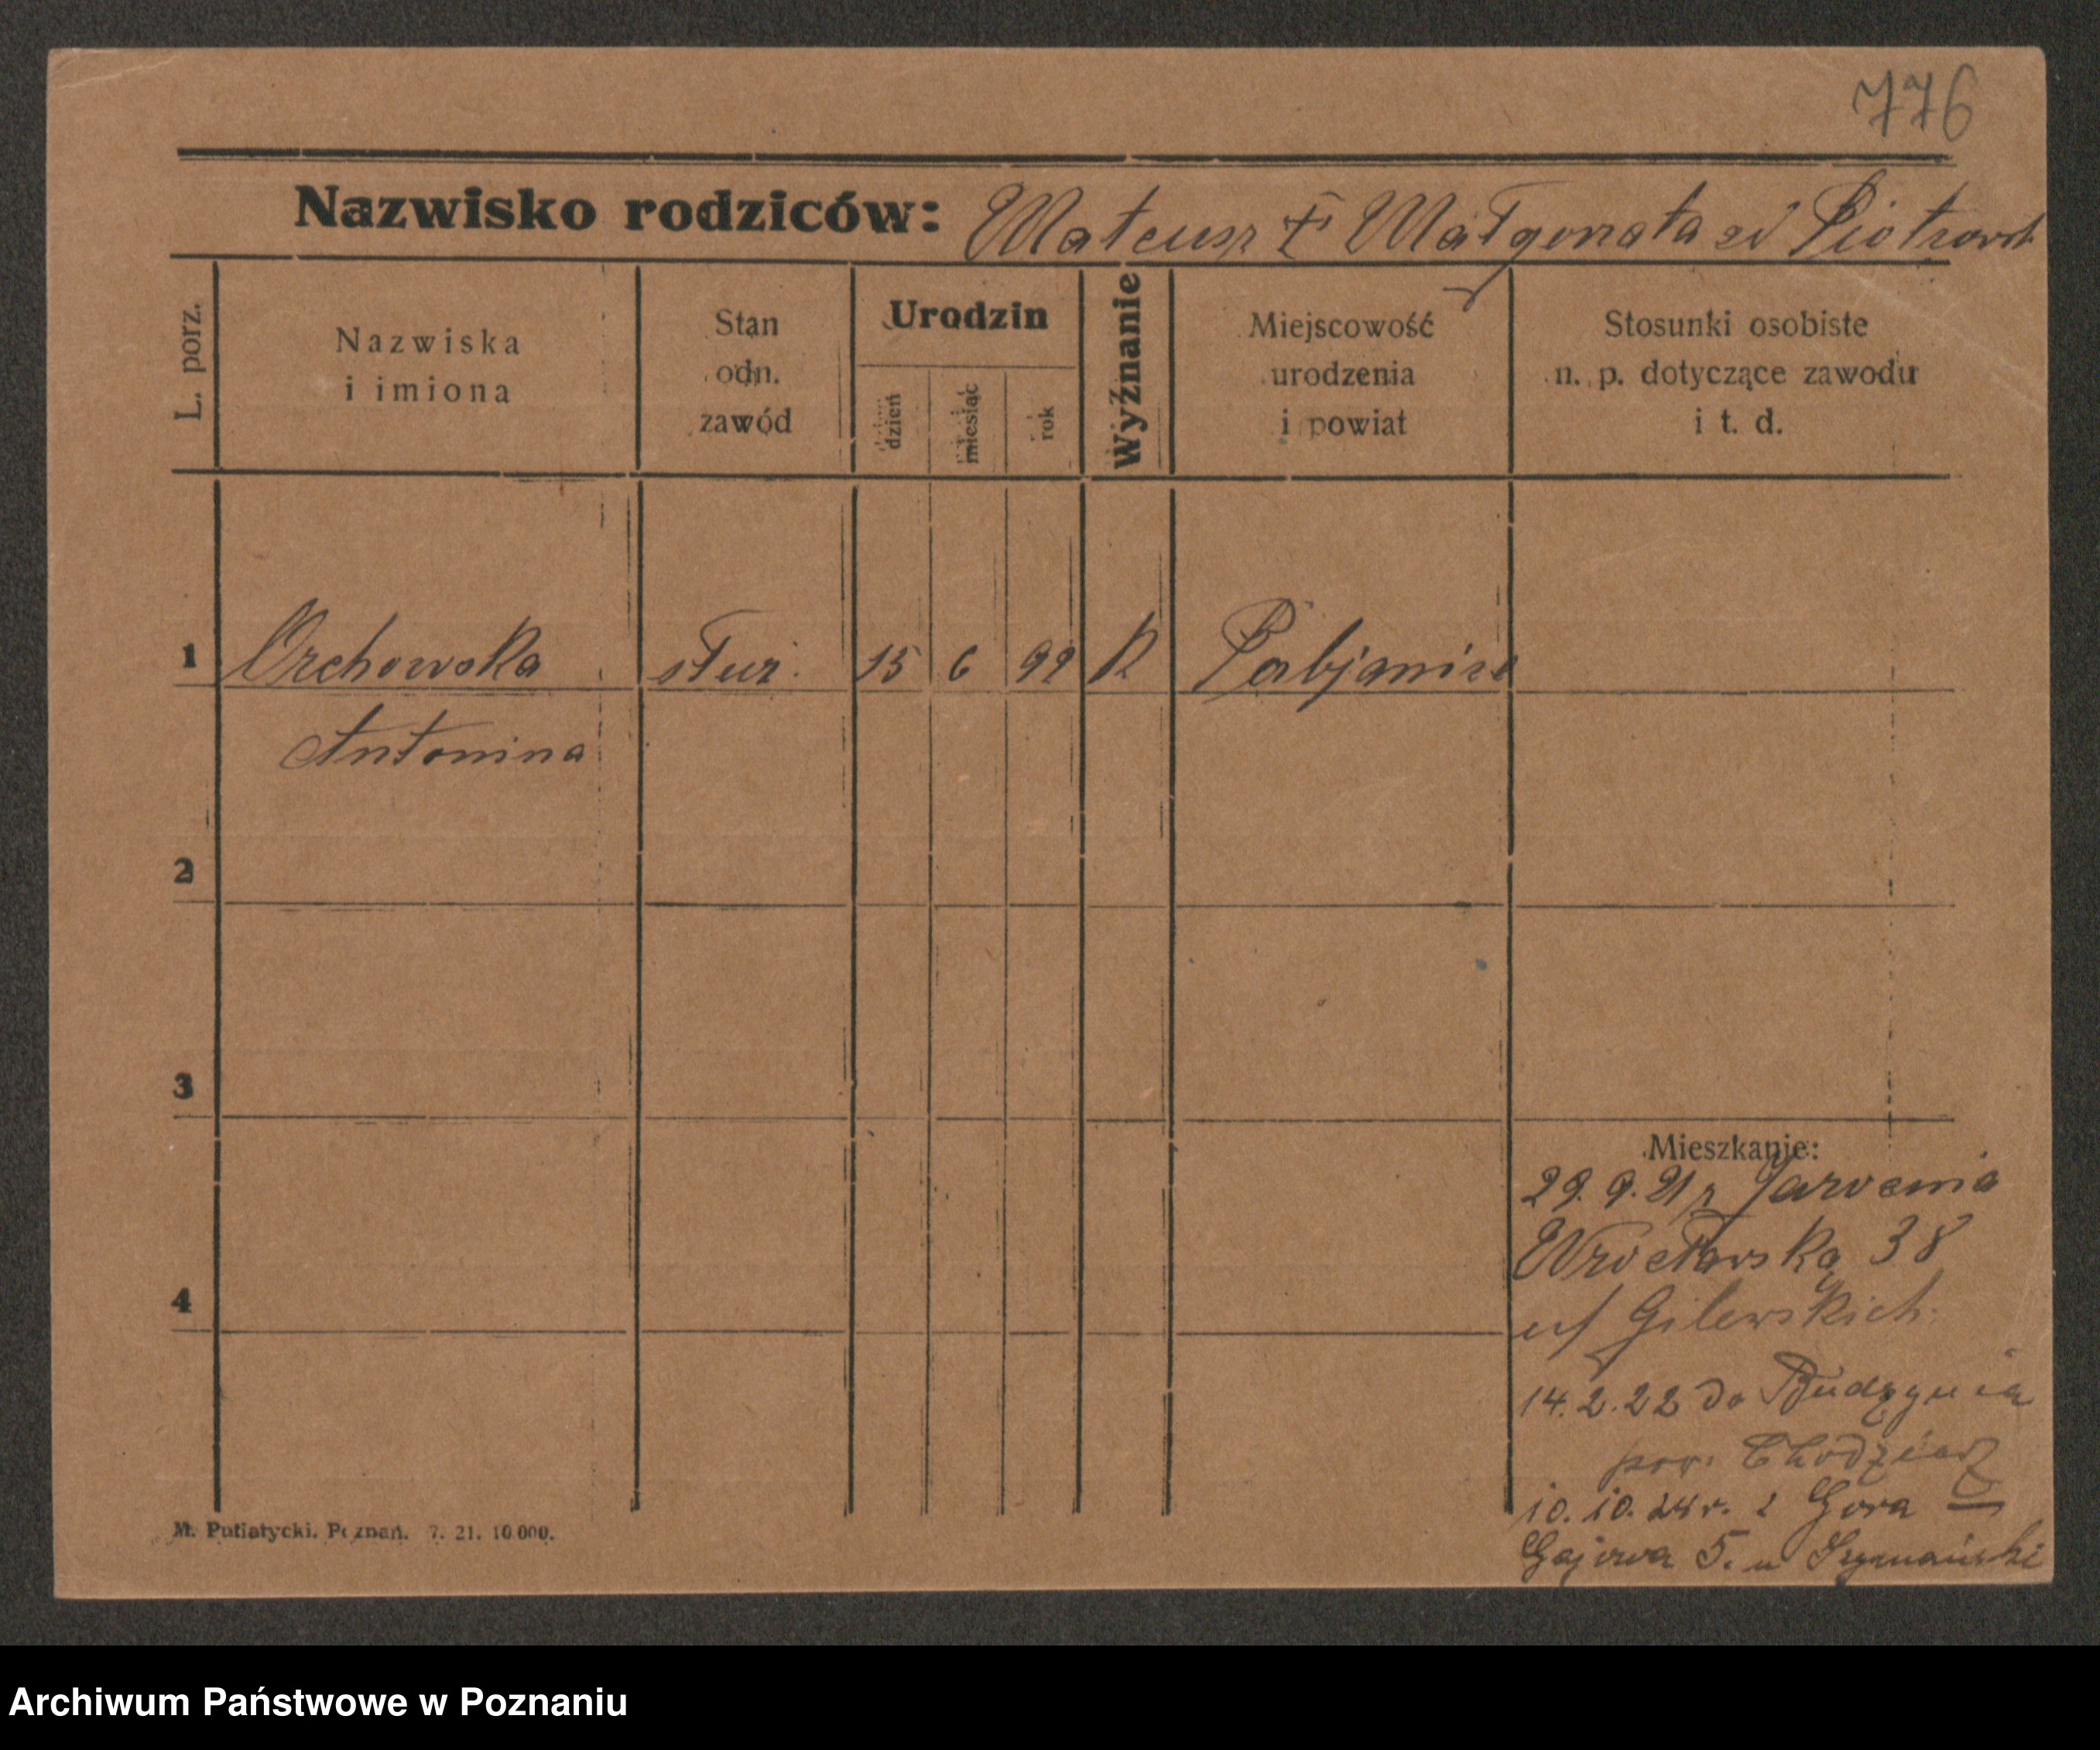 776
Nazwisko rodziców: Mateusz † Małgorzata zd Piotrowsk
L. porz.
Nazwiska
i imiona
Stan
odn.
zawód
Urodzin
dzień
miesiąc
rok
Wyznanie
Miejscowość
urodzenia
i powiat
Stosunki osobiste
n. p. dotyczące zawodu
i t. d.
1 Orchowska służ. 15 6 99 R Pabjanice
Antonina
2
3
4
Mieszkanie:
29.9.21 z Jarocenia
Wrocławska 38
u/ Gilewskich
14.2.22 do Budzynia
pow. Chodzież
10.10.24 r. z Gora
Gajowa 5. u Szymański
M. Putiatycki. Poznań. 7. 21. 10 000.
Archiwum Państwowe w Poznaniu